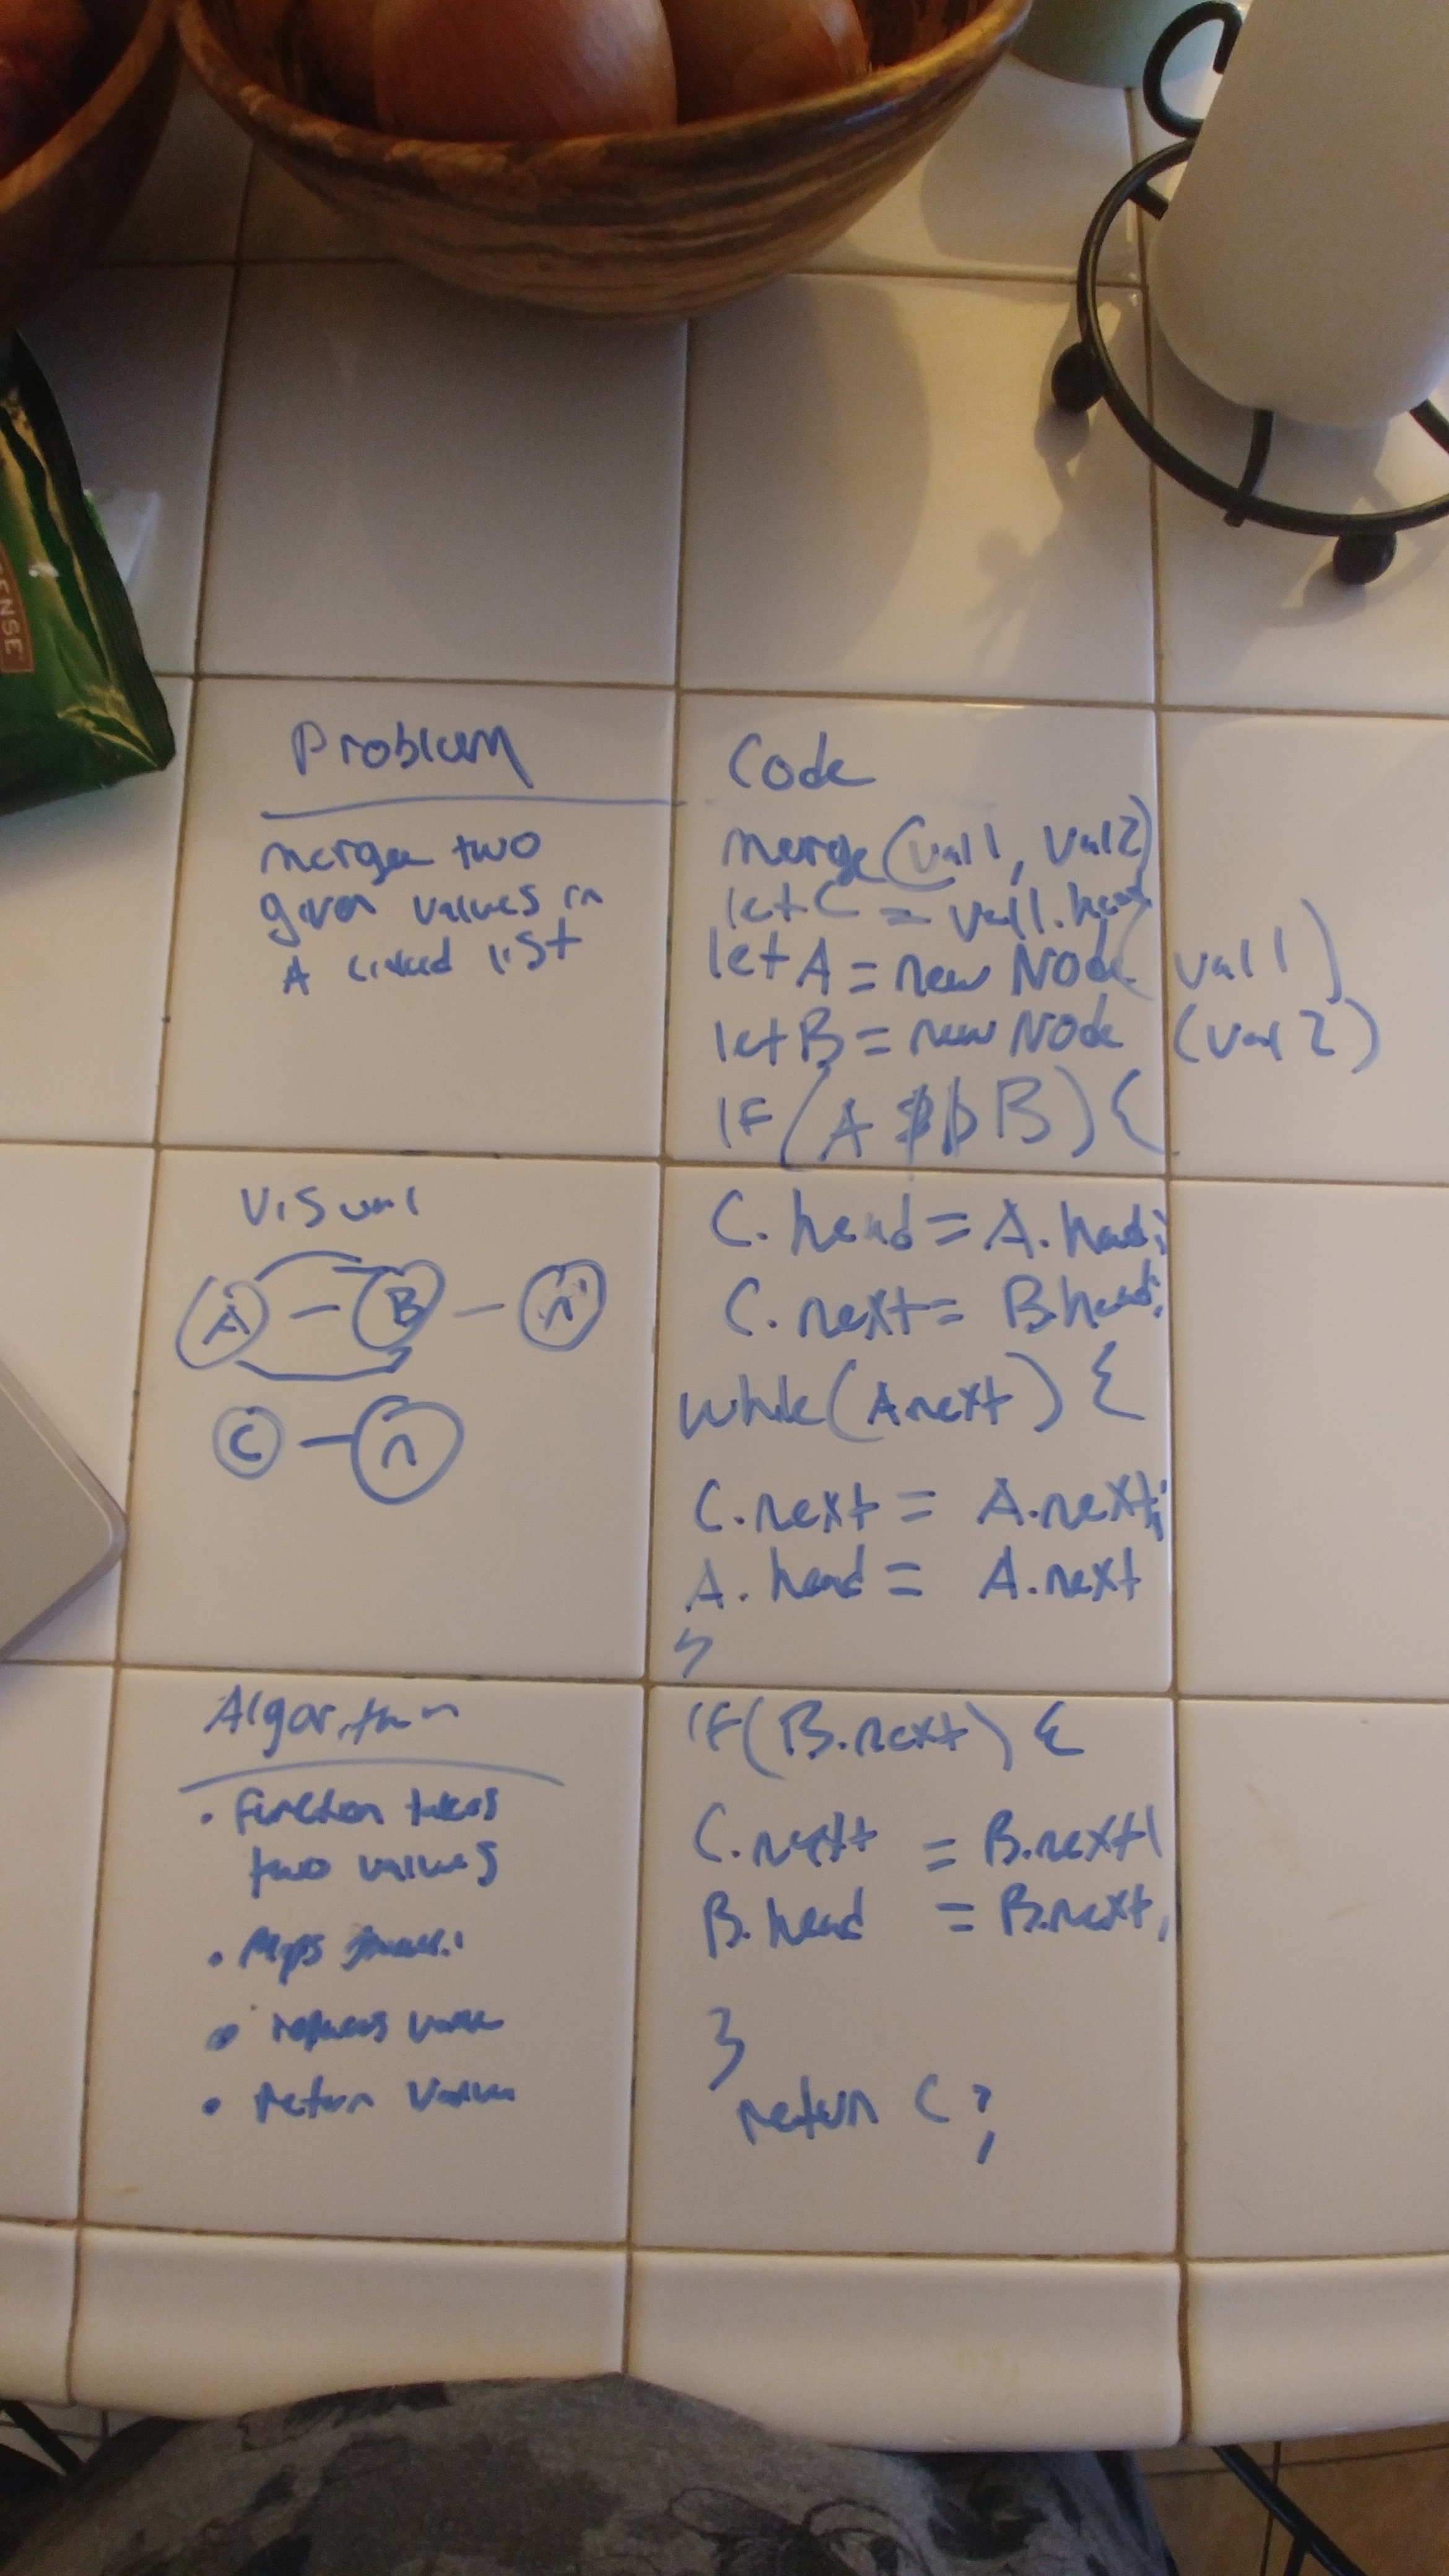 ENSE
Problem
merge two
given values in
A linked list
Visual
A - B - n
C - n
Algorithm
• Function takes
two values
• Maps
• replaces value
• return value
Code
merge(val1, val2)
let C = val1.head
let A = new Node(val1)
let B = new Node (val2)
IF(A && B){
C.head = A.head;
C.next = B.head;
while(A.next) {
C.next = A.next;
A.head = A.next
}
IF(B.next) {
C.next = B.next
B.head = B.next,
}
return C;